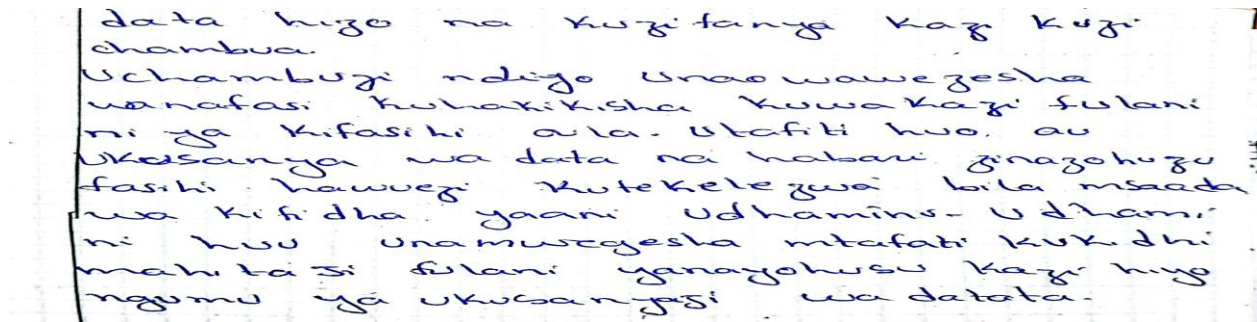 data hizo na kuzifanya kazi kuzi
chambua.
Uchambuzi ndiyo unaowawezesha
wanafasi kuhakikisha kuwa kazi fulani
ni ya kifasihi a la. Utafiti huo. au
Ukusanya wa data na habari zinazohuzu
fasihi hawuezi kutekelezwa bila msaada
wa kifidha yaani udhamini - Udhami
ni huu unamuwezesha mtafati kukidhi
mahitaji fulani yanayohusu kazi hiyo
ngumu ya ukusanyazi wa datata.